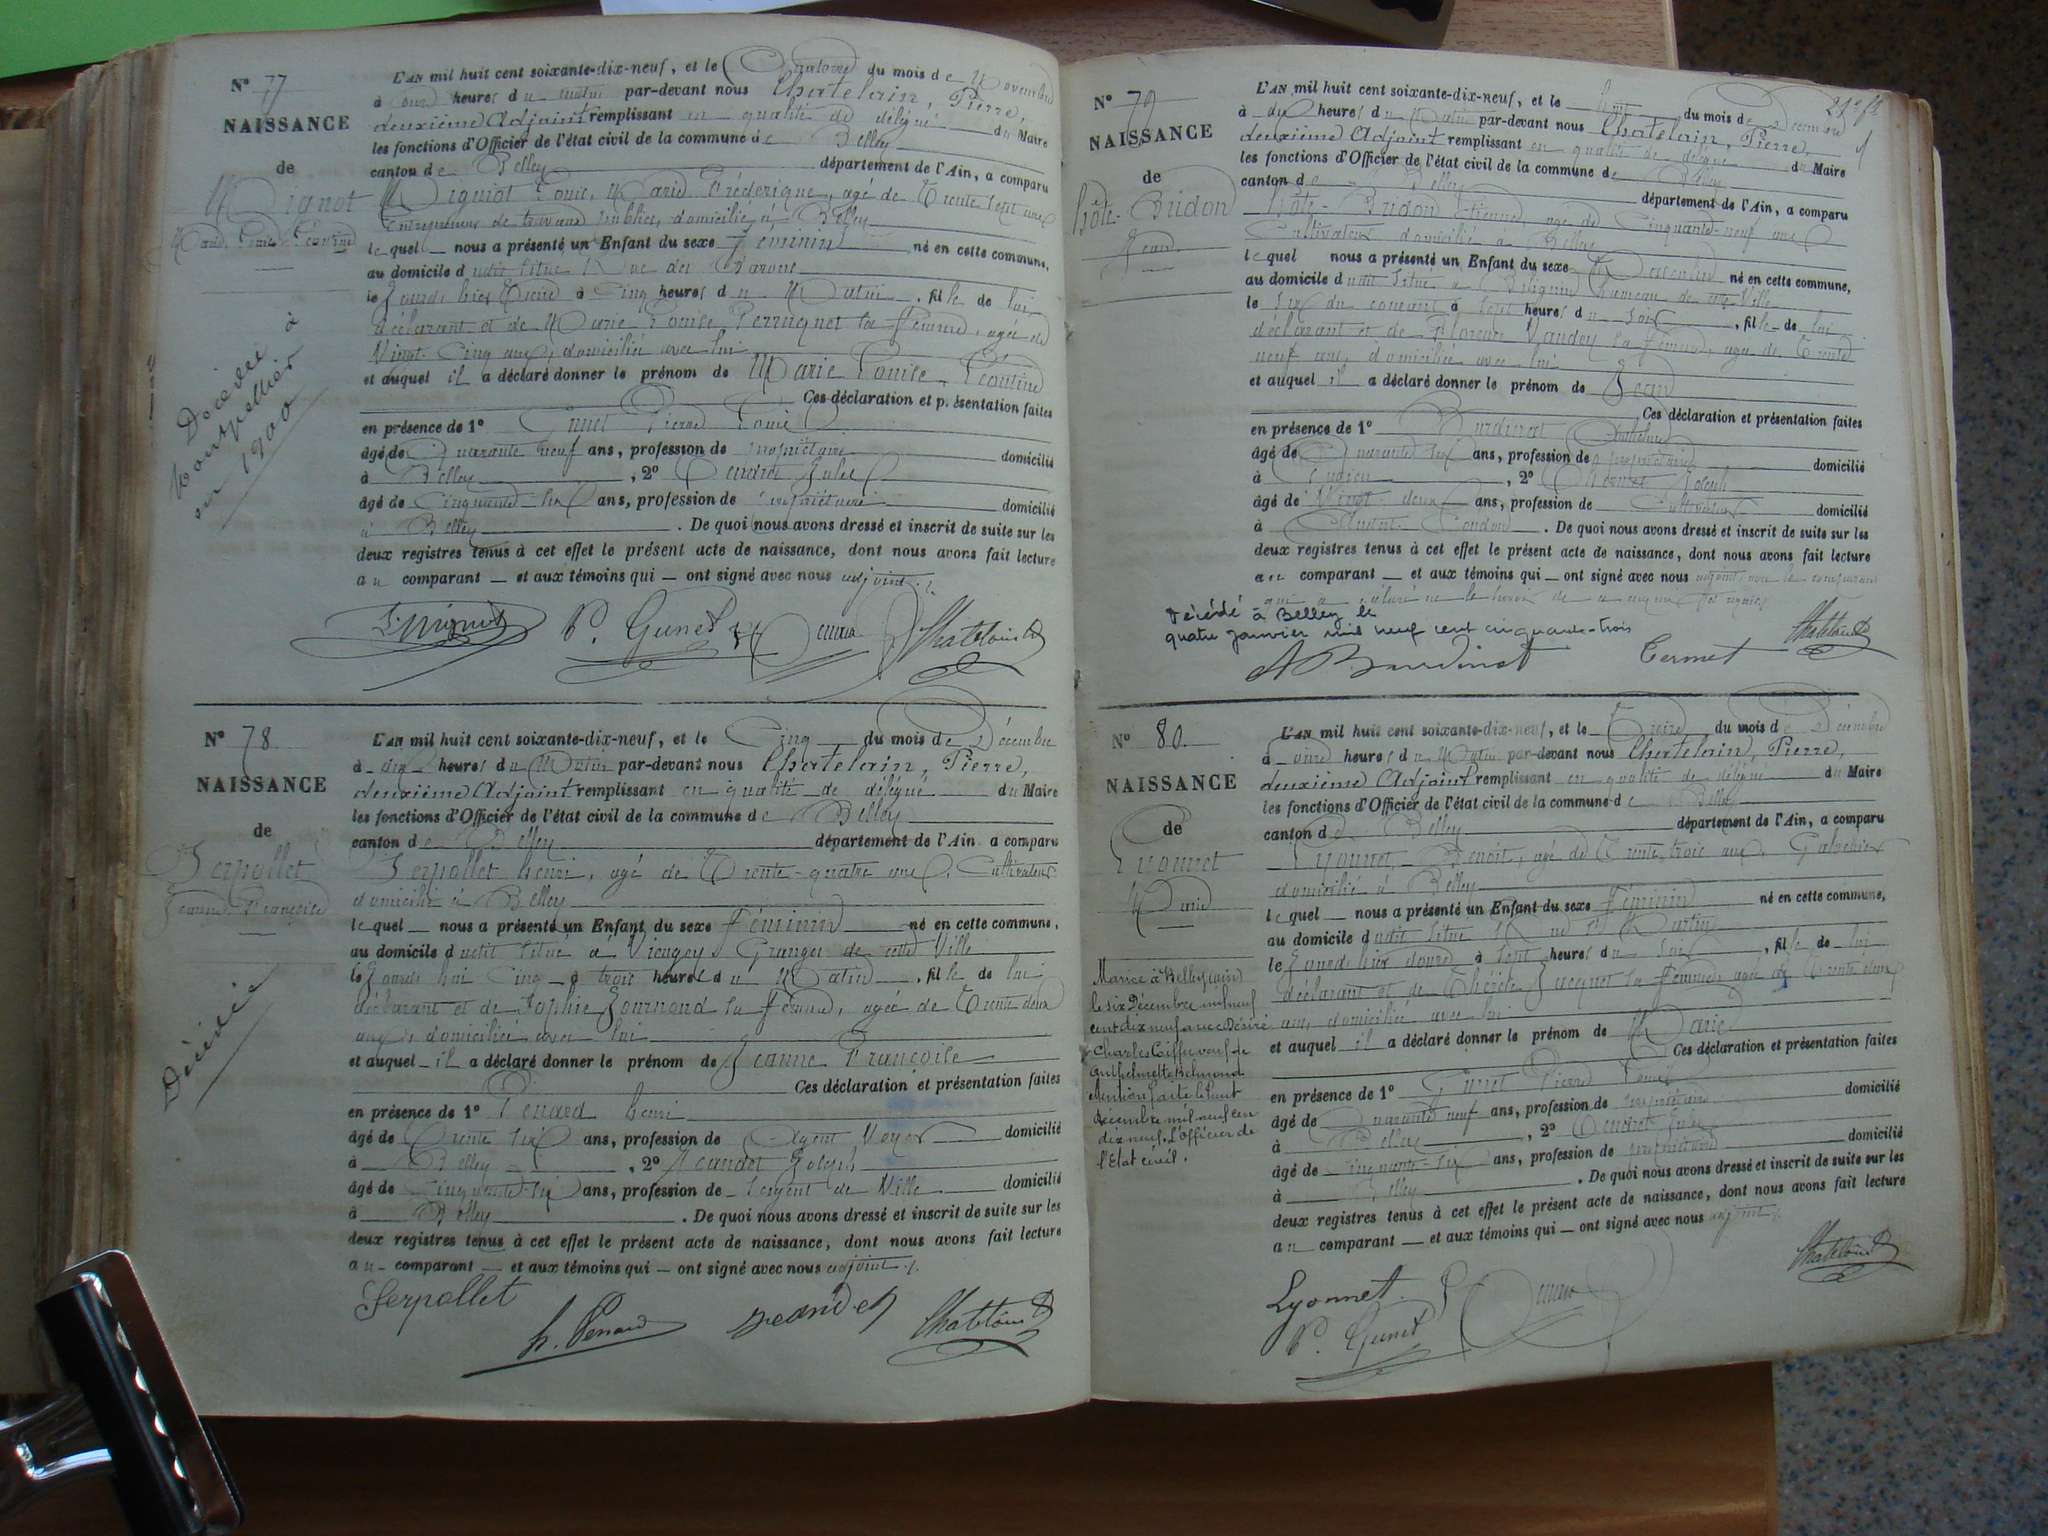 N° 77
NAISSANCE
de
Mignot
Marie Louise Léontine
Décédée à
Montpellier
en 1900
L'AN mil huit cent soixante-dix-neuf, et le Quatorze du mois de Novembre
à onze heures du matin par-devant nous Chatelain, Pierre,
deuxième Adjoint remplissant en qualité de délégué du Maire
les fonctions d'Officier de l'état civil de la commune de Belley
canton de Belley département de l'Ain, a comparu
Mignot Louis, Marie Fréderique, agé de Trente sept ans
Entrepreneur de travaux publics, domicilié à Belley
lequel nous a présenté un Enfant du sexe Féminin né en cette commune,
au domicile d situé Rue des Barons
le jourds hier Treize à Cinq heures du Matin, fille de lui
déclarant et de Marie Louise Perruquet sa femme, agée de
Vingt Cinq ans, domiciliée avec lui
et auquel il a déclaré donner le prénom de Marie Louise, Léontine
Ces déclaration et présentation faites
en présence de 1° Gunet Pierre Louis
âgé de Quarante neuf ans, profession de propriétaire domicilié
à Belley, 2°
âgé de Cinquante six ans, profession de propriétaire domicilié
à Belley. De quoi nous avons dressé et inscrit de suite sur les
deux registres tenus à cet effet le présent acte de naissance, dont nous avons fait lecture
au comparant et aux témoins qui ont signé avec nous adjoint.
L Mignot P. Gunet Chatelain
N° 78
NAISSANCE
de
Serpollet
Jeanne Françoise
Décédée
L'AN mil huit cent soixante-dix-neuf, et le Cinq du mois de Décembre
à dix heures du Matin par-devant nous Chatelain, Pierre,
deuxième Adjoint remplissant en qualité de délégué du Maire
les fonctions d'Officier de l'état civil de la commune de Belley
canton de Belley département de l'Ain a comparu
Serpollet henri, agé de Trente-quatre ans, Cultivateur
domicilié à Belley
lequel nous a présenté un Enfant du sexe Féminin né en cette commune,
au domicile d situé à Granges de cette Ville
le Jourds hui Cinq à trois heures du Matin, fille de lui
déclarant et de Sophie sa Femme, agée de Trente deux
ans domiciliée avec lui
et auquel il a déclaré donner le prénom de Jeanne Françoise
Ces déclaration et présentation faites
en présence de 1° Penard henri
âgé de Trente six ans, profession de Agent Voyer domicilié
à Belley, 2° Jeandet Joseph
âgé de Cinquante six ans, profession de Sergent de Ville domicilié
à Belley. De quoi nous avons dressé et inscrit de suite sur les
deux registres tenus à cet effet le présent acte de naissance, dont nous avons fait lecture
au comparant et aux témoins qui ont signé avec nous adjoint.
Serpollet h. Penard Jeandet Chatelain
N° 79
NAISSANCE
de
hôte-Bridon
Jean
L'AN mil huit cent soixante-dix-neuf, et le huit du mois de Décembre
à dix heures du Matin par-devant nous Chatelain, Pierre,
deuxième Adjoint remplissant en qualité de délégué du Maire
les fonctions d'Officier de l'état civil de la commune de Belley
canton de Belley département de l'Ain, a comparu
hôte-Bridon Etienne, agé de Cinquante-neuf ans
Cultivateur domicilié à Belley
lequel nous a présenté un Enfant du sexe Masculin né en cette commune,
au domicile d situé à Billignin hameau de cette Ville
le six du courant à Sept heures du Soir, fils de lui
déclarant et de Florence sa Femme, agée de Trente
neuf ans, domiciliée avec lui
et auquel il a déclaré donner le prénom de Jean
Ces déclaration et présentation faites
en présence de 1° Bourdinat
âgé de Quarante six ans, profession de propriétaire domicilié
à, 2° Joseph
âgé de Vingt deux ans, profession de Cultivateur domicilié
à. De quoi nous avons dressé et inscrit de suite sur les
deux registres tenus à cet effet le présent acte de naissance, dont nous avons fait lecture
au comparant et aux témoins qui ont signé avec nous adjoint, non le comparant
qui a déclaré ne le savoir de ce requis
Décédé à Belley le
quatre Janvier mil neuf cent cinquante-trois
Chatelain
N° 80
NAISSANCE
de
Lyonnet
Marie
Mariée à Belley (ain)
le six Décembre mil neuf
cent dix neuf avec Désiré
Charles veuf de
Mention faite le huit
décembre mil neuf cent
dix neuf. L'officier de
l'Etat civil.
L'AN mil huit cent soixante-dix-neuf, et le Treize du mois de Décembre
à onze heures du Matin par-devant nous Chatelain, Pierre,
deuxième Adjoint remplissant en qualité de délégué du Maire
les fonctions d'Officier de l'état civil de la commune de Belley
canton de Belley département de l'Ain, a comparu
Lyonnet Benoit, agé de Trente trois ans,
domicilié à Belley
lequel nous a présenté un Enfant du sexe Féminin né en cette commune,
au domicile d situé Rue St Martin
le Jourds hier douze à Sept heures du Soir, fille de lui
déclarant et de Thérèse sa Femme, agée de Trente deux
ans, domiciliée avec lui
et auquel il a déclaré donner le prénom de Marie
Ces déclaration et présentation faites
en présence de 1° Gunet Pierre Louis
âgé de Quarante neuf ans, profession de propriétaire domicilié
à Belley, 2°
âgé de Cinquante-six ans, profession de propriétaire domicilié
à Belley. De quoi nous avons dressé et inscrit de suite sur les
deux registres tenus à cet effet le présent acte de naissance, dont nous avons fait lecture
au comparant et aux témoins qui ont signé avec nous adjoint.
Lyonnet Chatelain
P. Gunet